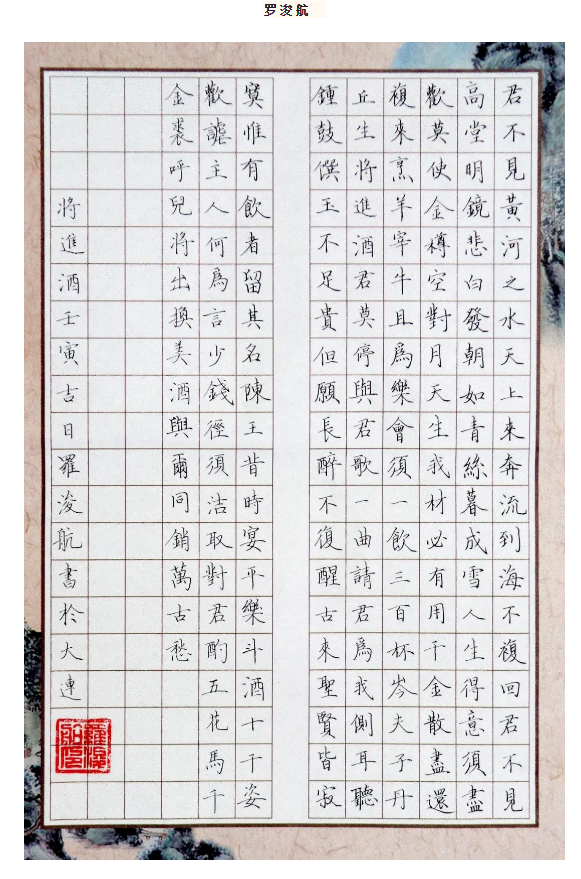 罗浚航
君不見黃河之水天上來奔流到海不複回君不見
高堂明鏡悲白發朝如青絲暮成雪人生得意須盡
歡莫使金樽空對月天生我材必有用千金散盡還
複來烹羊宰牛且爲樂會須一飲三百杯岑夫子丹
丘生將進酒君莫停與君歌一曲請君爲我側耳聽
鍾鼓饌玉不足貴但願長醉不復醒古來聖賢皆寂
寞惟有飲者留其名陳王昔時宴平樂斗酒十千姿
歡謔主人何爲言少錢徑須沽取對君酌五花馬千
金裘呼兒將出換美酒與爾同銷萬古愁
將進酒壬寅吉日羅浚航書於大連